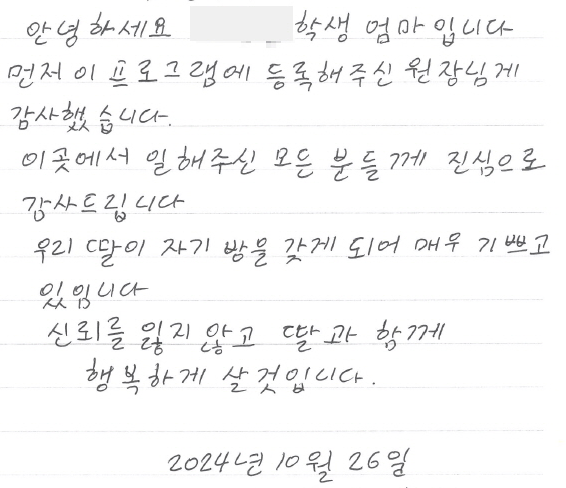 안녕하세요 학생 엄마입니다
먼저 이 프로그램에 등록해주신 원장님게
감사했습니다.
이곳에서 일해주신 모든 분들께 진심으로
감사드립니다
우리 딸이 자기 방을 갖게 되어 매우 기쁘고
있임니다
신뢰를 잃지 않고 딸과 함께
행복하게 살 것입니다.
2024년 10월 26일